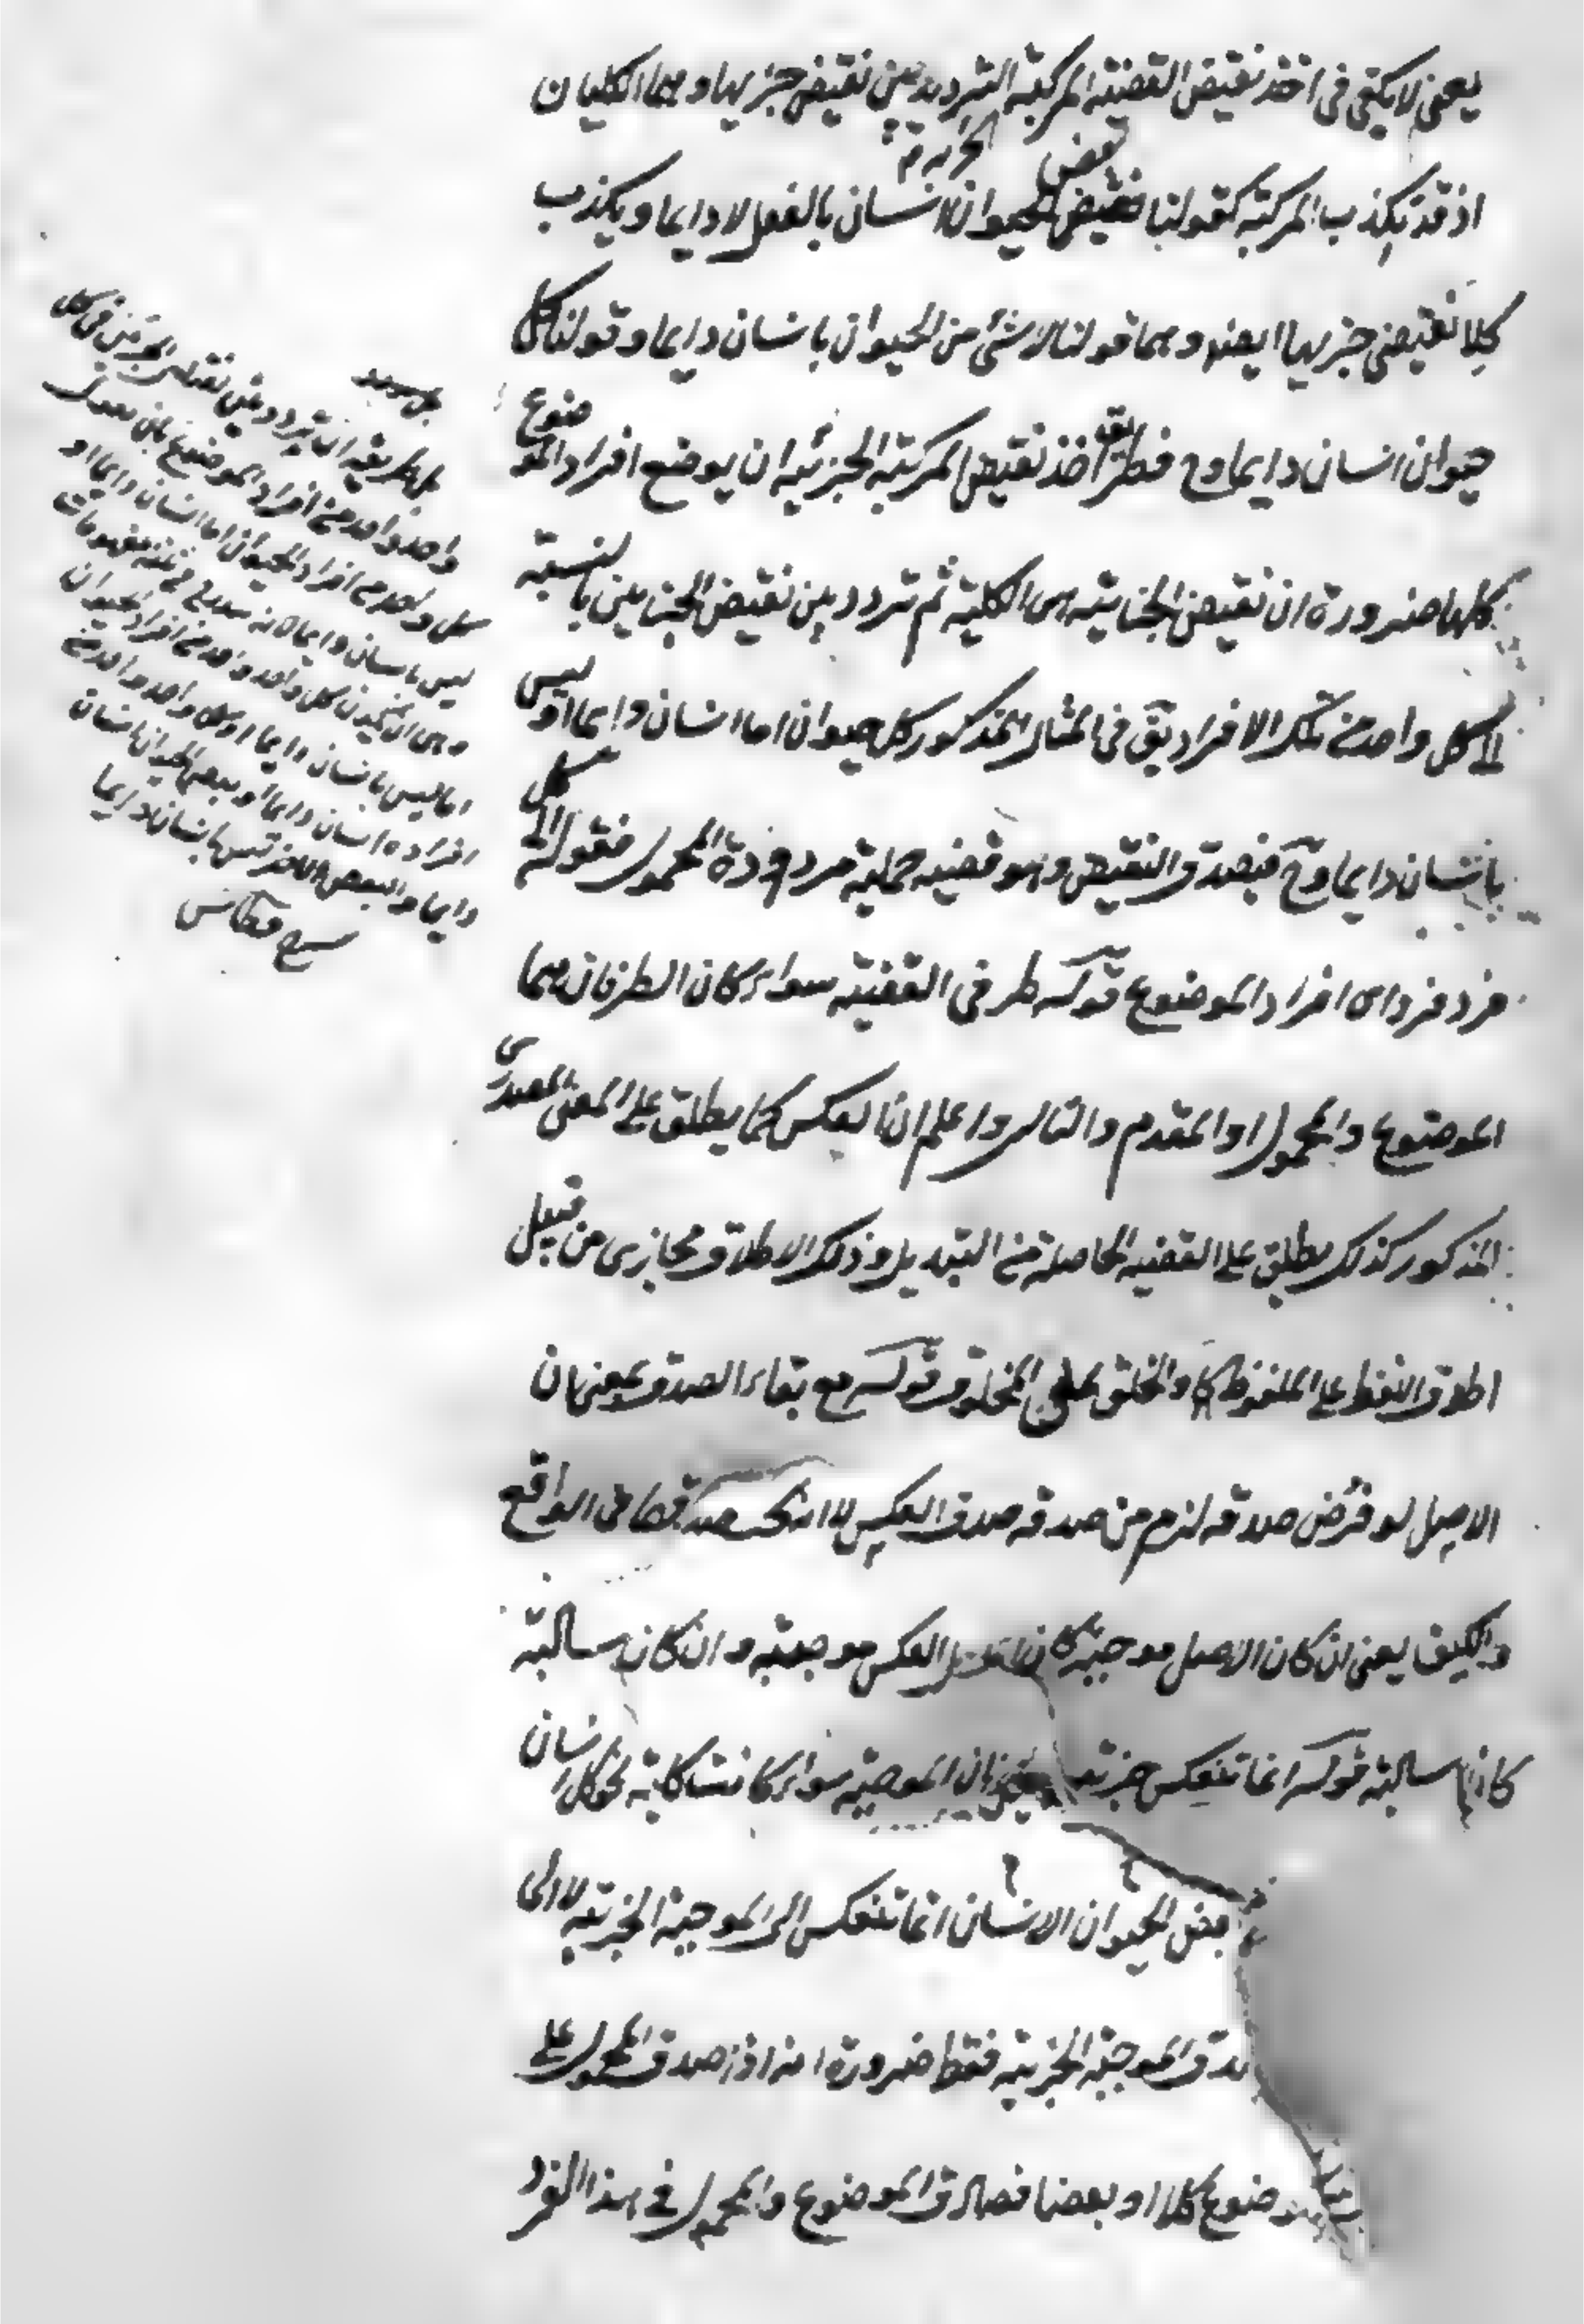 يعنى لا يكفى فى اخذ نقيض القضية المركبة الترديد بين نقيض جزئيها وهما الكليتان
الجزئية
بعض
اذ قد يكذب المركبة كقولنا الحيوان انسان بالفعل لا دايما ويكذب
كلا نقيضى جزئيها ايضا وهما قولنا لا شئ من الحيوان بانسان دايما وقولنا كل
حيوان انسان دايما وح فطريق اخذ نقيض المركبة الجزئية ان يوضع افراد الموضوع
كلها ضرورة ان نقيض الجزئية هى الكلية ثم تردد بين نقيض الجزئين بالنسبة
كل واحد من تلك الافراد يق فى المثال المذكور كل حيوان اما انسان دايما او ليس
بانسان دايما وح فيصدق النقيض وهو قضية حملية مرددة المحمول فقوله الى كل
فرد فرد اى افراد الموضوع قوله طرفى القضية سواء كان الطرفان هما
الموضوع والمحمول او المقدم والتالى واعلم ان العكس كما يطلق على المعنى المصدرى
المذكور كذلك يطلق على القضية الحاصلة من التبديل وذلك الاطلاق مجازى من قبيل
اطلاق اللفظ على الملفوظ والخلق على المخلوق قوله مع بقاء الصدق بمعنى ان
الاصل لو فرض صدقه لزم من صدقه صدق العكس لا انه يجب صدقهما فى الواقع
والكيف يعنى ان كان الاصل موجبة كان العكس موجبة وان كان سالبة
كان سالبة قوله انما تنعكس جزئية يعنى ان الموجبة سواء كانت كلية نحو كل انسان
بعض الحيوان الانسان انما تنعكس الى الموجبة الجزئية لا الى
صدق الموجبة الجزئية فقط ضرورة انه اذا صدق المحمول على
موضوع كلا او بعضا فصادق الموضوع والمحمول فى هذا الفرد
بل طريقه ان تردد بين نقيضى الجزئين فى كل
واحد واحد من افراد الموضوع بان يقول
كل واحد من افراد الحيوان اما انسان دايما او
ليس بانسان دايما
وهى ان يكون كل واحد واحد من افراد الحيوان
اما ليس بانسان دايما او كل واحد واحد من
افراده انسان دايما او بعض الحيوان انسان
دايما والبعض الاخر ليس بانسان دايما
شرح